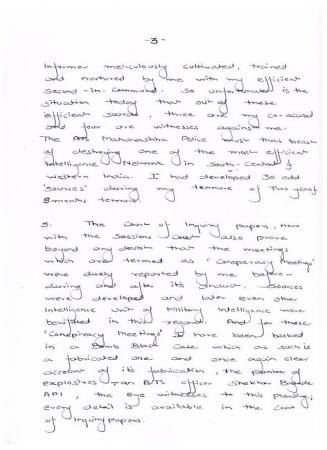 -3-
Informer meticulously cultivated, trained
and nurtured by me with my efficient
Second-in-Command. So unfortunate is the
situation today that out of these
efficient sources, three are my co-accused
and four are witnesses against me.
The ATS Maharashtra Police must thus boast
of destroying one of the most efficient
Intelligence Network in South-Central &
western India. I had developed 30 odd
'Sources' during my tenure of Two years
8 months tenure.
5. The Court of Inquiry papers, now
with the Sessions Court also prove
beyond any doubt that the meetings
which are termed as 'Conspiracy Meetings'
were duly reported by me before-
during and after its conduct. Sources
were developed and later even other
Intelligence Unit of Military Intelligence were
benifitted in this regard. And for these
'Conspiracy Meetings' I have been booked
in a Bomb Blast Case which as such is
a fabricated one and once again clear
account of its fabrication, the planter of
explosives an ATS officer Shekhar Bagade
API, the eye witnesses to this planting,
every detail is available in the Court
of Inquiry papers.